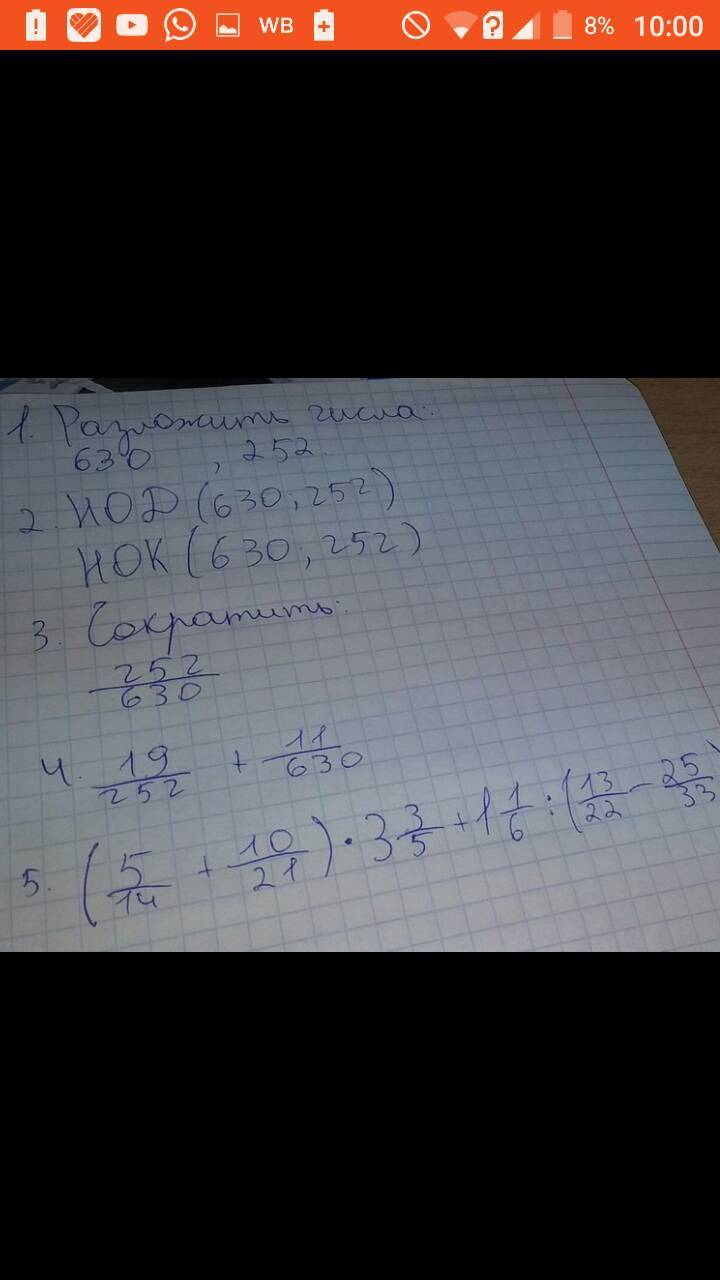 WB 8% 10:00
1. Разложить числа:
630 , 252.
2. НОД (630; 252)
НОК (630; 252)
3. Сократить:
252/630
4. 19/252 + 11/630
5. (5/14 + 10/21) · 3 3/5 + 1 1/6 : (13/22 − 25/33)